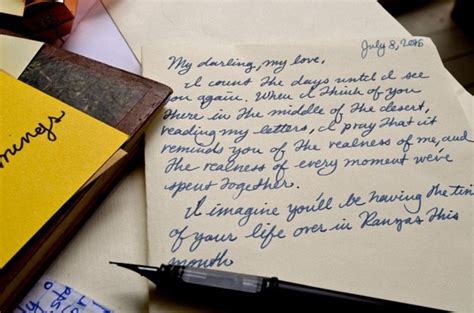 July 8,
My darling, my love,
I count the days until I see
you again. When I think of you
there in the middle of the desert,
reading my letters, I pray that it
reminds you of the realness of me, and
the realness of every moment we've
spent together.
I imagine you'll be having the tim
of your life over in this
month